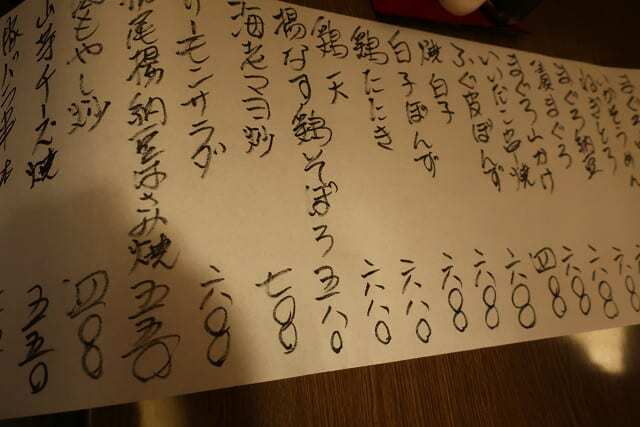 まぐろ
いかそうめん 六〇〇
ねぎとろ 六〇〇
まぐろ納豆 六〇〇
まぐろ
まぐろ山かけ 六〇〇
いいだこ串焼 四〇〇
ふぐ皮ぽんず 六〇〇
焼白子 六〇〇
白子ぽんず 六〇〇
鶏たたき 六八〇
鶏天 六八〇
揚なす鶏そぼろ 五八〇
海老マヨ炒 七〇〇
サーモンサラダ 六〇〇
栃尾揚納豆はさみ焼 五五〇
もやし炒 四〇〇
山芋チーズ焼 五五〇
豚バラ串